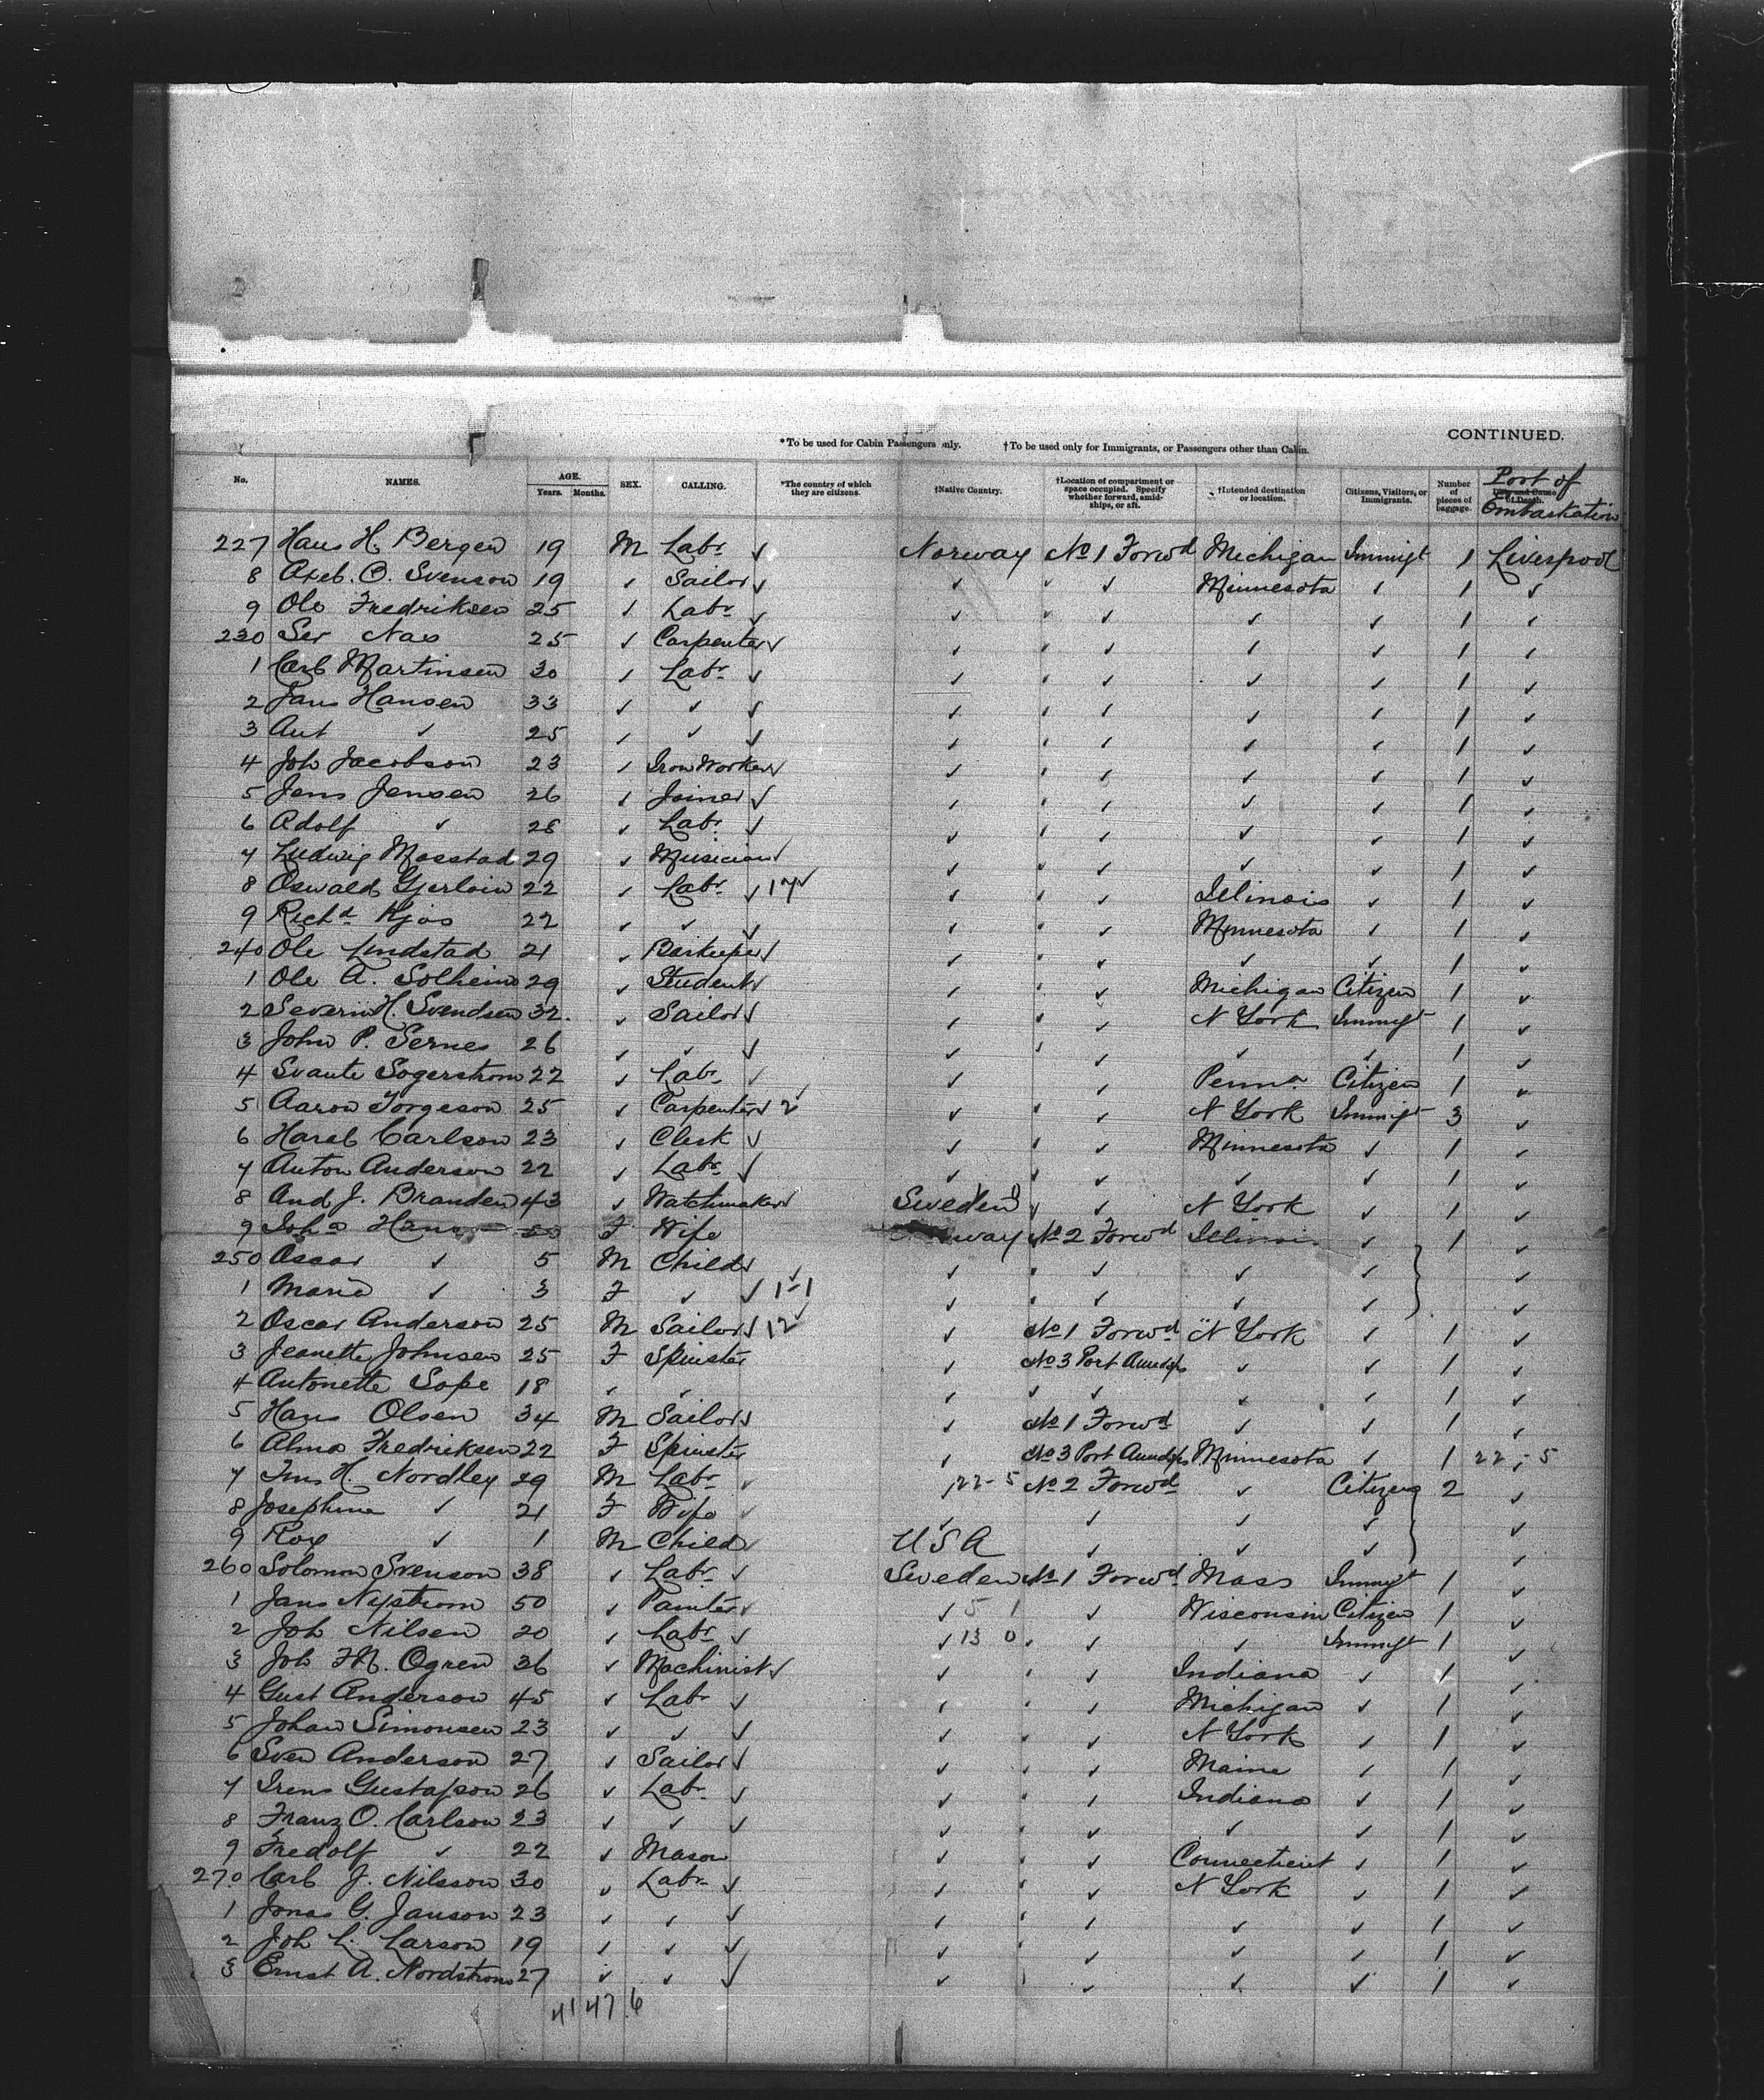 CONTINUED.
*To be used for Cabin Passengers only. †To be used only for Immigrants, or Passengers other than Cabin.
No. NAMES. AGE. Years. Months. SEX. CALLING. *The country of which they are citizens. †Native Country. †Location of compartment or space occupied. Specify whether forward, amidships, or aft. †Intended destination or location. Citizens, Visitors, or Immigrants. Number of pieces of baggage. Date and Cause of Death. Port of Embarkation
227 Hans H. Bergen 19 M Labr ✓ Norway No 1 Forwd Michigan Immigt 1 Liverpool
8 Axel. O. Svenson 19 ✓ Sailor ✓ ✓ ✓ ✓ Minnesota ✓ 1 ✓
9 Ole Fredriksen 25 ✓ Labr ✓ ✓ ✓ ✓ ✓ ✓ 1 ✓
230 Ser Nas 25 ✓ Carpenter ✓ ✓ ✓ ✓ ✓ ✓ 1 ✓
1 Carl Martinsen 30 ✓ Labr ✓ ✓ ✓ ✓ ✓ ✓ 1 ✓
2 Jans Hansen 33 ✓ ✓ ✓ ✓ ✓ ✓ ✓ ✓ 1 ✓
3 Ant ✓ 25 ✓ ✓ ✓ ✓ ✓ ✓ ✓ ✓ 1 ✓
4 Joh Jacobson 23 ✓ Iron Worker ✓ ✓ ✓ ✓ ✓ ✓ 1 ✓
5 Jens Jensen 26 ✓ Joiner ✓ ✓ ✓ ✓ ✓ ✓ 1 ✓
6 Adolf ✓ 28 ✓ Labr ✓ ✓ ✓ ✓ ✓ ✓ 1 ✓
7 Ludwig Mosstad 29 ✓ Musician ✓ ✓ ✓ ✓ ✓ ✓ 1 ✓
8 Oswald Gjerloin 22 ✓ Labr ✓ 17 ✓ ✓ ✓ ✓ Illinois ✓ 1 ✓
9 Richd Kjos 22 ✓ ✓ ✓ ✓ ✓ ✓ Minnesota ✓ 1 ✓
240 Ole Lindstad 21 ✓ Barkeeper ✓ ✓ ✓ ✓ ✓ ✓ 1 ✓
1 Ole A. Solheim 29 ✓ Student ✓ ✓ ✓ ✓ Michigan Citizen 1 ✓
2 Severin H. Svendsen 32. ✓ Sailor ✓ ✓ ✓ ✓ N York Immigt 1 ✓
3 John P. Sernes 26 ✓ ✓ ✓ ✓ ✓ ✓ ✓ ✓ 1 ✓
4 Svante Sogerstrom 22 ✓ Labr ✓ ✓ ✓ Penna Citizen 1 ✓
5 Aaron Torgeson 25 ✓ Carpenter ✓ 2 ✓ ✓ ✓ ✓ N York Immigt 3 ✓
6 Harel Carlson 23 ✓ Clerk ✓ ✓ ✓ ✓ Minnesota ✓ 1 ✓
7 Anton Anderson 22 ✓ Labr ✓ ✓ ✓ ✓ ✓ ✓ 1 ✓
8 And J. Branden 43 ✓ Watchmaker ✓ Sweden ✓ ✓ N York ✓ 1 ✓
9 Joha Hans F Wife Norway No 2 Forwd Illinois ✓ 1 ✓
250 Oscar ✓ 5 M Child ✓ ✓ ✓ ✓ ✓ ✓ ✓
1 Maria ✓ 3 F ✓ ✓ 1-1 ✓ ✓ ✓ ✓ ✓ ✓
2 Oscar Anderson 25 M Sailor ✓ 12 ✓ ✓ No 1 Forwd N York ✓ 1 ✓
3 Jeanette Johnsen 25 F Spinster ✓ No 3 Port Amidsps ✓ ✓ 1 ✓
4 Antonette Sope 18 ✓ ✓ ✓ ✓ ✓ ✓ ✓ 1 ✓
5 Hans Olsen 34 M Sailor ✓ ✓ No 1 Forwd ✓ ✓ 1 ✓
6 Alma Fredriksen 22 F Spinster ✓ No 3 Port Amidsps Minnesota ✓ 1 22 - 5
7 H. Nordley 29 M Labr ✓ 22-5 No 2 Forwd ✓ Citizens 2 ✓
8 Josephine ✓ 21 F Wife ✓ ✓ ✓ ✓ ✓ ✓
9 Roy ✓ 1 M Child ✓ USA ✓ ✓ ✓ ✓
260 Solomon Svenson 38 ✓ Labr ✓ Sweden No 1 Forwd Mass Immigt 1 ✓
1 Jans Nystrom 50 ✓ Painter ✓ ✓ 5 1 ✓ Wisconsin Citizen 1 ✓
2 Joh Nilsen 20 ✓ Labr ✓ ✓ 13 0 ✓ ✓ Immigt 1 ✓
3 Joh FM. Ogren 36 ✓ Machinist ✓ ✓ ✓ ✓ Indiana ✓ 1 ✓
4 Gust Anderson 45 ✓ Labr ✓ ✓ ✓ ✓ Michigan ✓ 1 ✓
5 Johan Simonsen 23 ✓ ✓ ✓ ✓ ✓ ✓ N York ✓ 1 ✓
6 Sven Anderson 27 ✓ Sailor ✓ ✓ ✓ ✓ Maine ✓ 1 ✓
7 Irens Gustafson 26 ✓ Labr ✓ ✓ ✓ ✓ Indiana ✓ 1 ✓
8 Franz O. Carlson 23 ✓ ✓ ✓ ✓ ✓ ✓ ✓ ✓ 1 ✓
9 Fredolf ✓ 22 ✓ Mason ✓ ✓ ✓ Connecticut ✓ 1 ✓
270 Carl J. Nilsson 30 ✓ Labr ✓ ✓ ✓ ✓ N York ✓ 1 ✓
1 Jonas G. Janson 23 ✓ ✓ ✓ ✓ ✓ ✓ ✓ ✓ 1 ✓
2 Joh L. Larson 19 ✓ ✓ ✓ ✓ ✓ ✓ ✓ ✓ 1 ✓
3 Ernst A. Nordstrom 27 ✓ ✓ ✓ ✓ ✓ ✓ ✓ ✓ 1 ✓
41 47 6